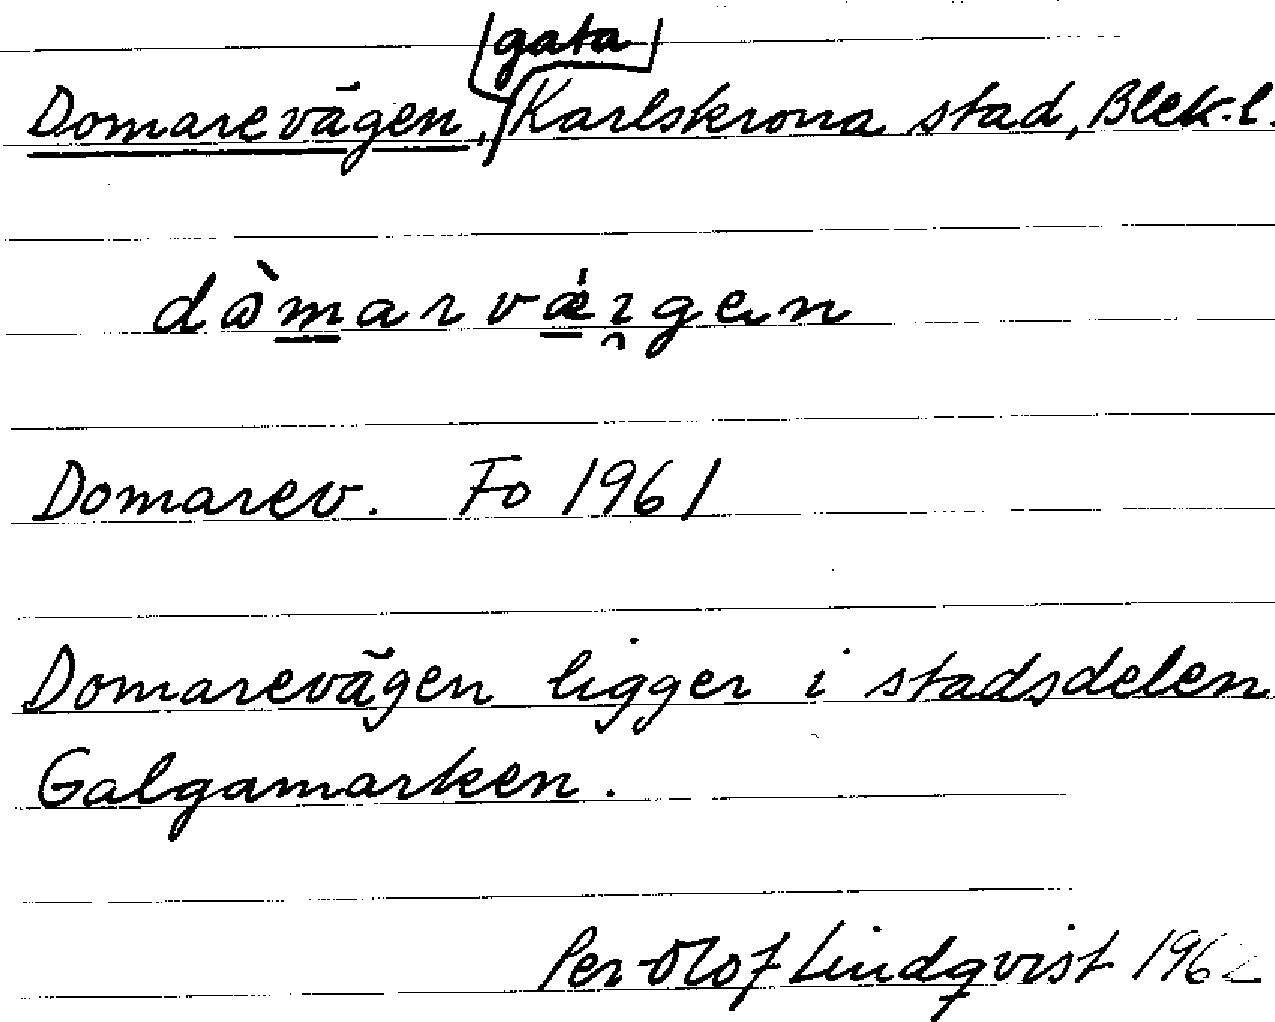 Domarevägen, gata, Karlskrona stad, Blek. l.
Domarev. Fo 1961
Domarevägen ligger i stadsdelen
Galgamarken.
Per-Olof Lindqvist 1962